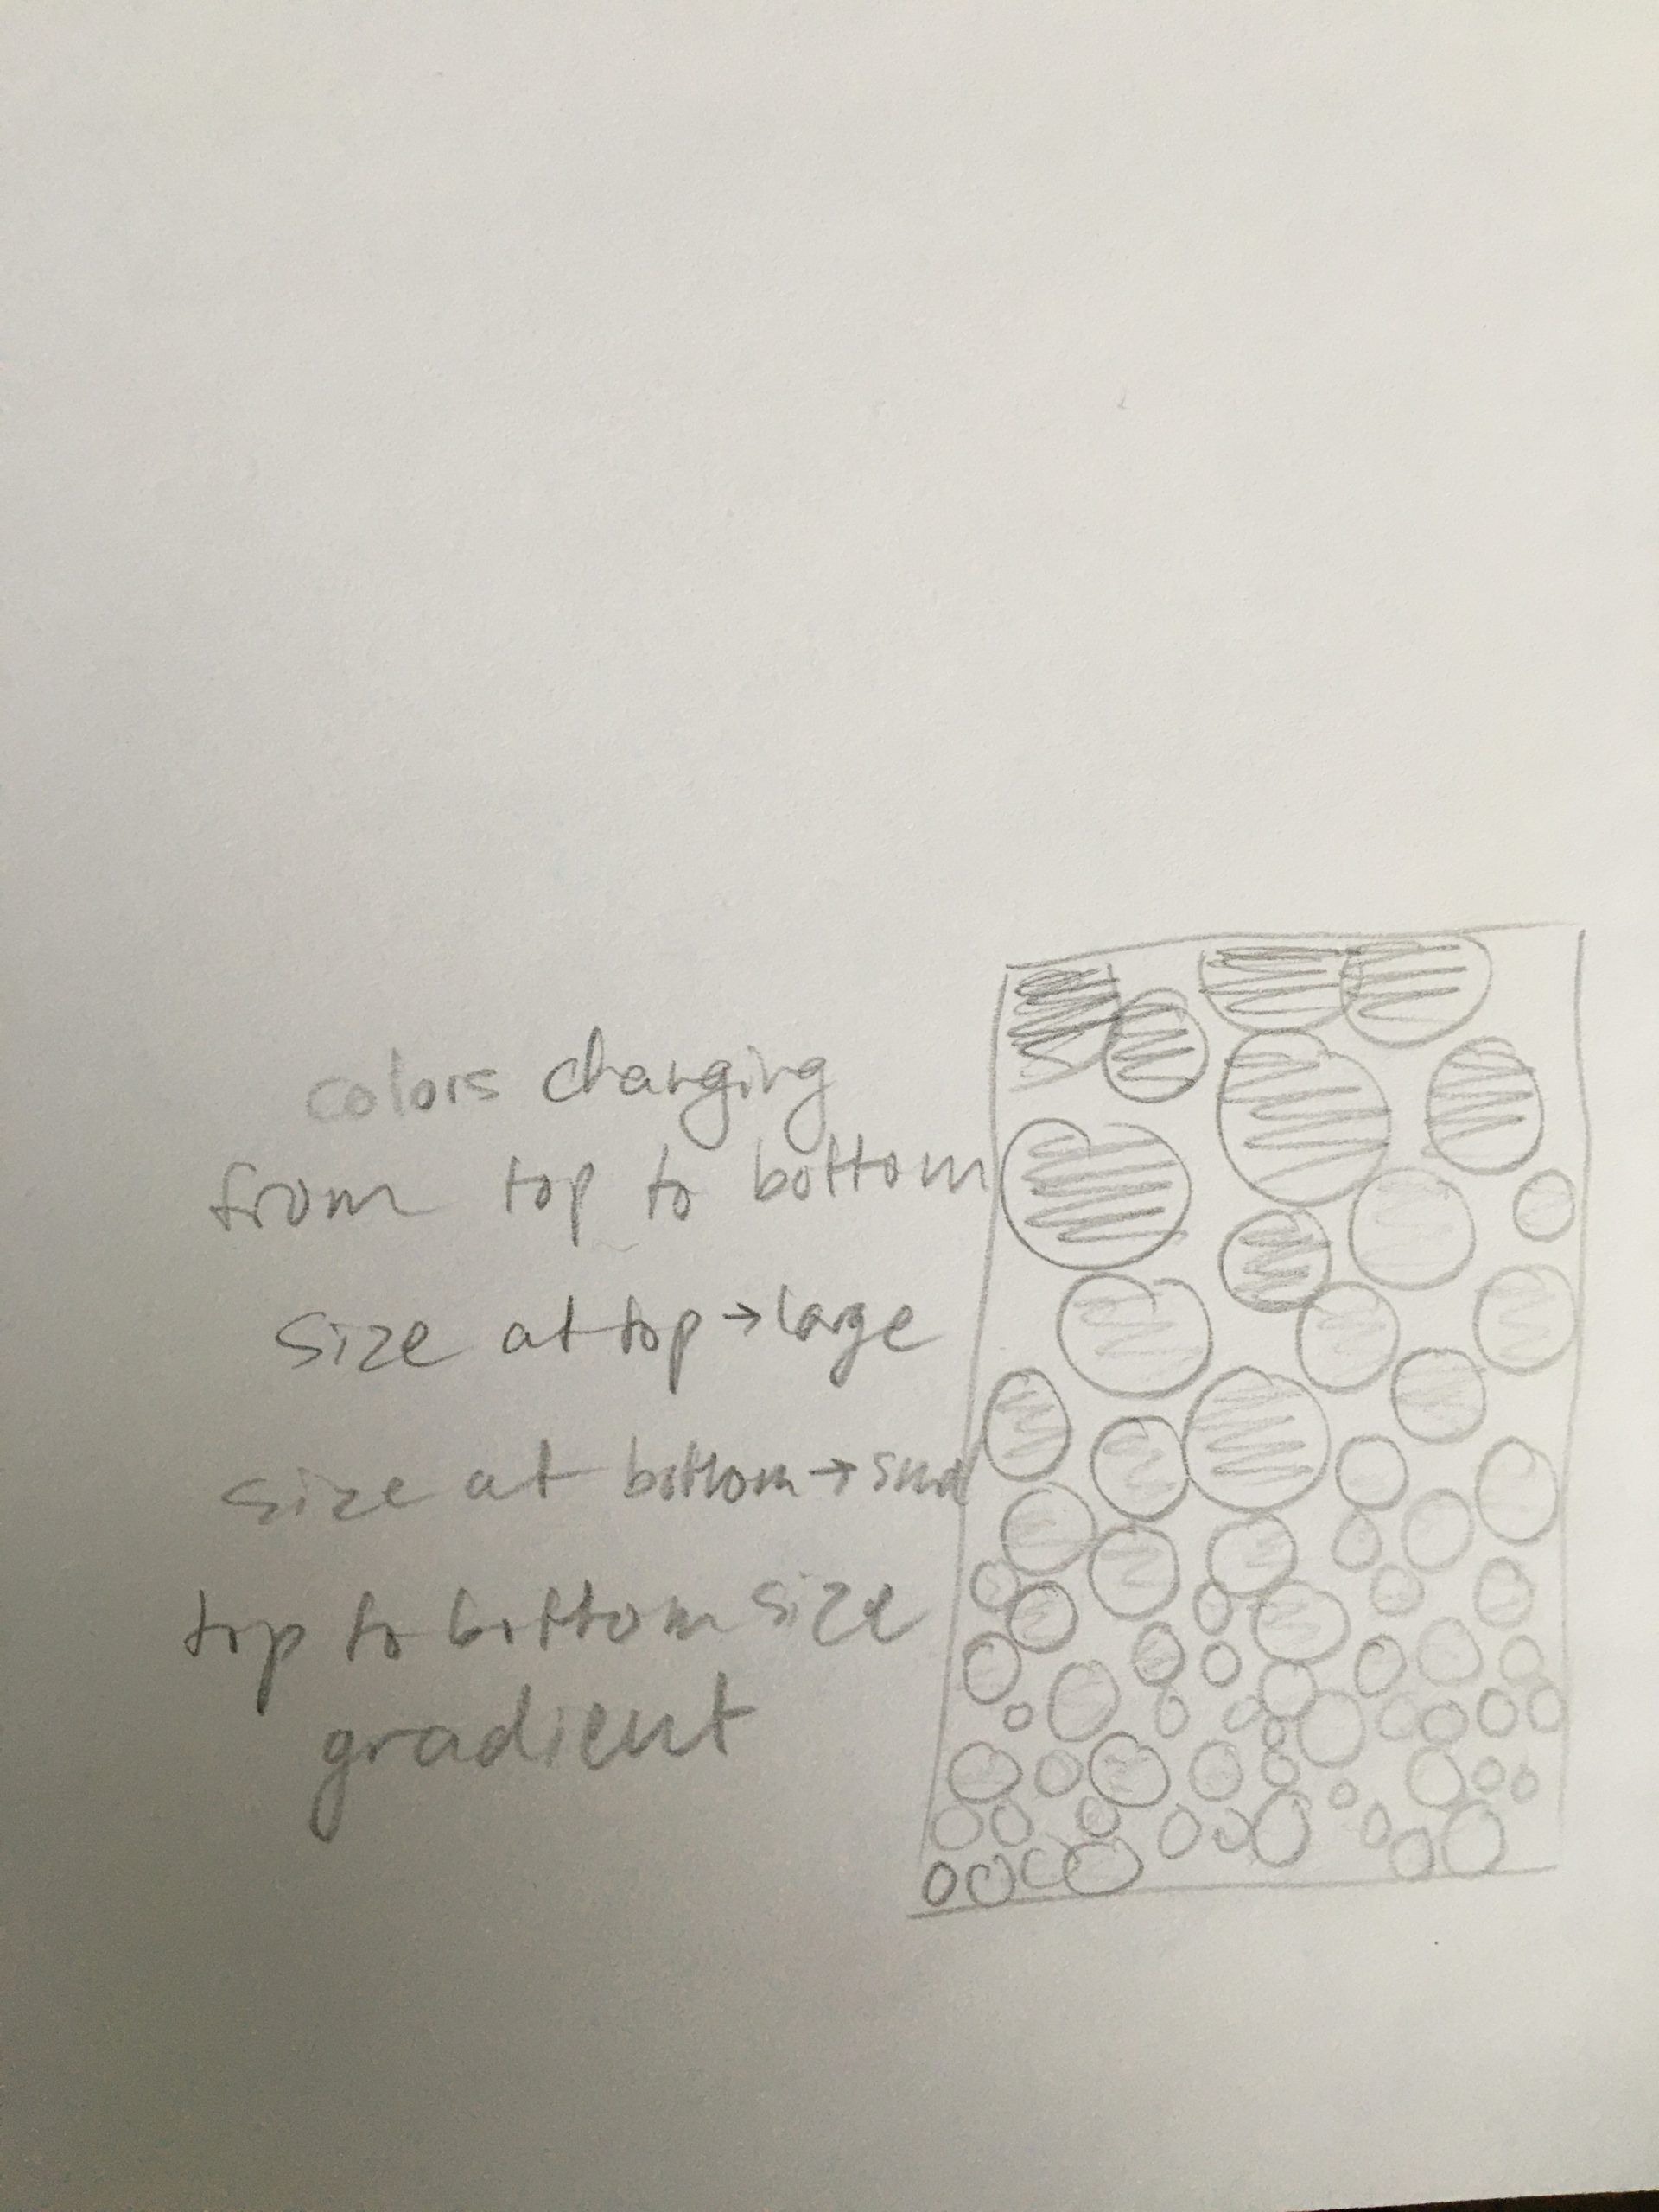 colors changing
from top to bottom
size at top → large
size at bottom → smal
top to bottom size
gradient